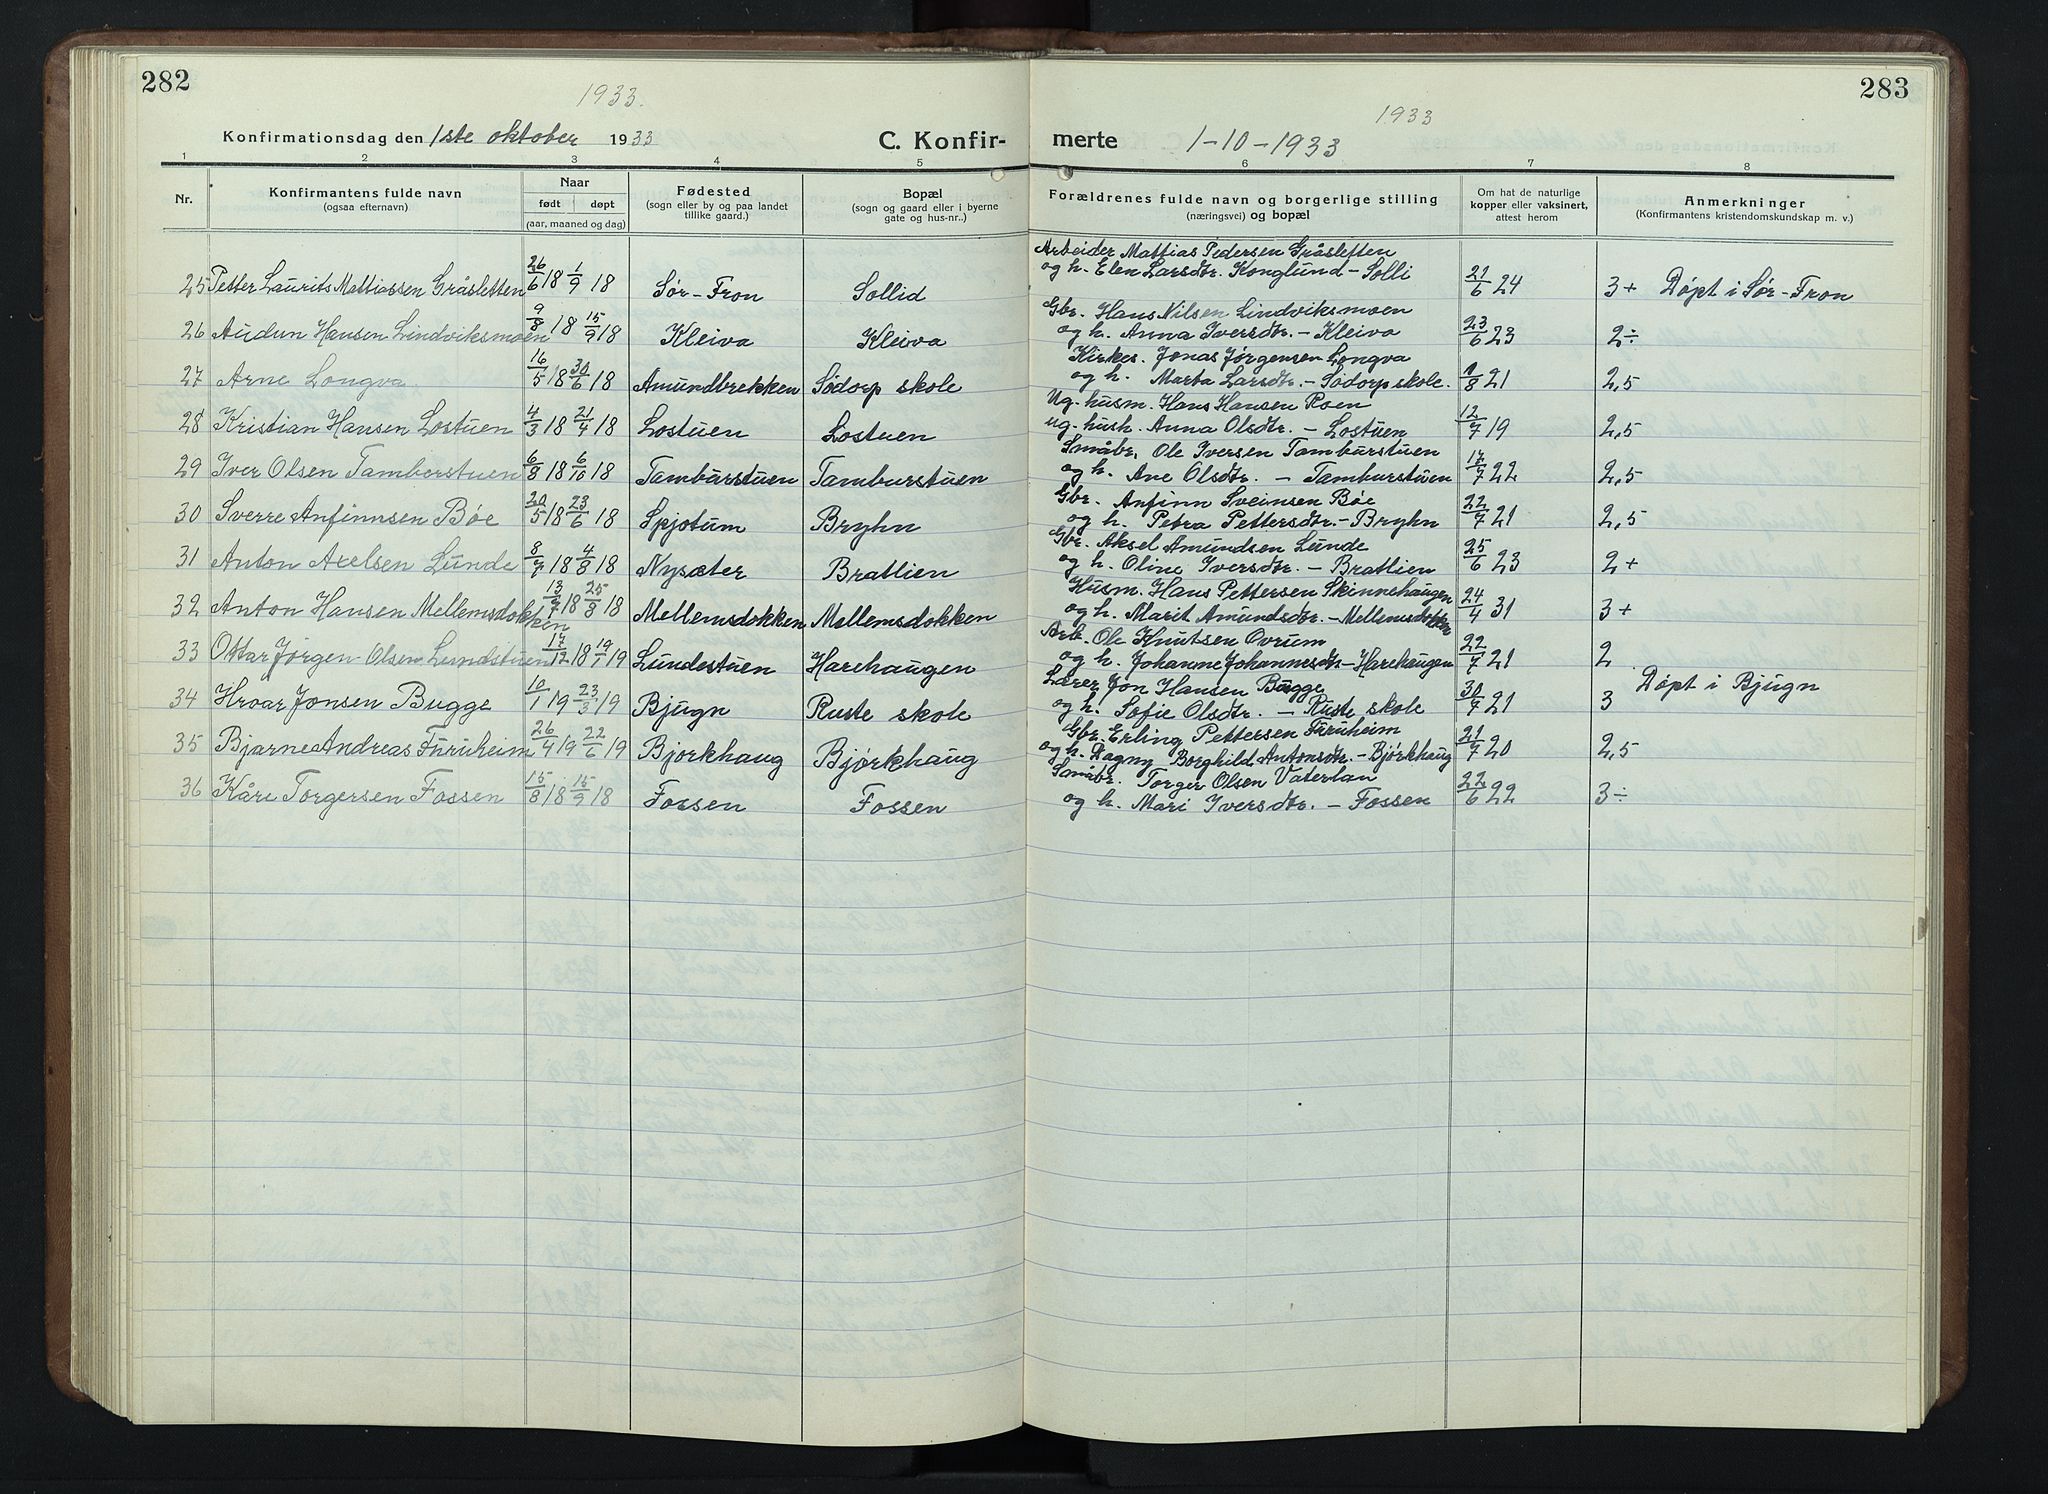 282
1933.
Konfirmationsdag den 1ste oktober 1933
C. Konfir-
1 2 3 4 5
Nr.
Konfirmantens fulde navn
(ogsaa efternavn)
Naar
født døpt
(aar, maaned og dag)
Fødested
(sogn eller by og paa landet
tillike gaard.)
Bopæl
(sogn og gaard eller i byerne
gate og hus-nr..)
25 Petter Laurits Mattiassen Gråsletten 26/6 18 1/9 18 Sør-Fron Sollid
26 Audun Hansen Lindviksmoen 9/8 18 15/9 18 Kleiva Kleiva
27 Arne Longva. 16/5 18 30/6 18 Amundbrekken Sødorp skole
28 Kristian Hansen Lostuen 4/3 18 21/4 18 Lostuen Lostuen
29 Iver Olsen Tamberstuen 6/8 18 6/10 18 Tamburstuen Tamburstuen
30 Sverre Anfinnsen Bøe 20/5 18 23/6 18 Spjotum Bryhn
31 Anton Axelsen Lunde 8/7 18 4/8 18 Nysæter Bratlien
32 Anton Hansen Mellemsdokken 13/7 18 25/8 18 Mellemsdokken Mellemsdokken
33 Ottar Jørgen Olsen Lundstuen 17/12 18 19/1 19 Lundestuen Harehaugen
34 Hroar Jonsen Bugge 10/1 19 23/3 19 Bjugn Ruste skole
35 Bjarne Andreas Furuheim 26/4 19 22/6 19 Bjorkhaug Bjørkhaug
36 Kåre Torgersen Fossen 15/8 18 15/9 18 Fossen Fossen
283
1933
merte 1-10-1933
6 7 8
Forældrenes fulde navn og borgerlige stilling
(næringsvei) og bopæl
Om hat de naturlige
kopper eller vaksinert,
attest herom
Anmerkninger
(Konfirmantens kristendomskundskap m. v.)
Arbeider Mattias Pedersen Gråsletten
og h. Elen Larsdtr. Konglund - Solli 21/6 24 3+ Døpt i Sør-Fron
Gbr. Hans Nilsen Lindviksmoen
og h. Anna Iversdtr. - Kleiva 23/6 23 2÷
Kirkes. Jonas Jørgensen Longva
og h. Marta Larsdtr. - Sødorp skole. 1/8 21 2,5
Ug. husm. Hans Hansen Roen
ug. hush. Anna Olsdtr. - Lostuen 12/7 19 2,5
Småbr. Ole Iversen Tamburstuen
og h. Ane Olsdtr. - Tamburstuen 17/7 22 2,5
Gbr. Anfinn Sveinsen Bøe
og h. Petra Pettersdtr. - Bryhn 22/7 21 2,5
Gbr. Aksel Amundsen Lunde
og h. Oline Iversdtr. - Bratlien 25/6 23 2+
Husm. Hans Pettersen Skinnehaugen
og h. Marit Amundsdtr. - Mellemsdokken 24/4 31 3+
Arb. Ole Knutsen Ovrum
og h. Johanne Johannesdtr - Harehaugen 22/7 21 2
Lærer Jon Hansen Bugge
og h. Sofie Olsdtr. - Ruste skole 30/7 21 3 Døpt i Bjugn
Gbr. Erling Pettersen Furuheim
og h. Dagny Borghild Antonsdtr. - Bjørkhaug 21/7 20 2,5
Småbr. Torger Olsen Vaterlan
og h. Mari Iversdtr. - Fossen 22/6 22 3÷